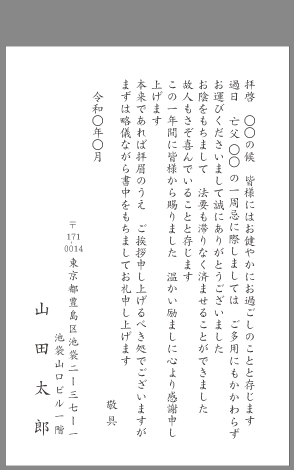 拝啓　〇〇の候　皆様にはお健やかにお過ごしのことと存じます
過日　亡父〇〇の一周忌に際しましては　ご多用にもかかわらず
お運びくださいまして誠にありがとうございました
お陰をもちまして　法要も滞りなく済ませることができました
故人もさぞ喜んでいることと存じます
この一年間に皆様から賜りました　温かい励ましに心より感謝申し
上げます
本来であれば拝眉のうえ　ご挨拶申し上げるべき処でございますが
まずは略儀ながら書中をもちましてお礼申し上げます
敬具
令和〇年〇月
〒171-0014 東京都豊島区池袋二ー三七ー一
池袋山口ビル一階
山田太郎